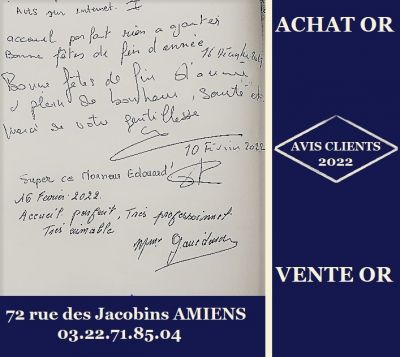 Avis sur internet. I
accueil parfait rien a ajouter
Bonne fêtes de fin d'année
Bonne fêtes de fin d'année
plein de bonheur, santé etc
merci de votre gentillesse
10 Février 2022
Super ce Monsieur Edouard
16 Fevrier 2022.
Accueil parfait, Très professionnel
Très aimable.
Mme
72 rue des Jacobins AMIENS
03.22.71.85.04
ACHAT OR
AVIS CLIENTS
2022
VENTE OR